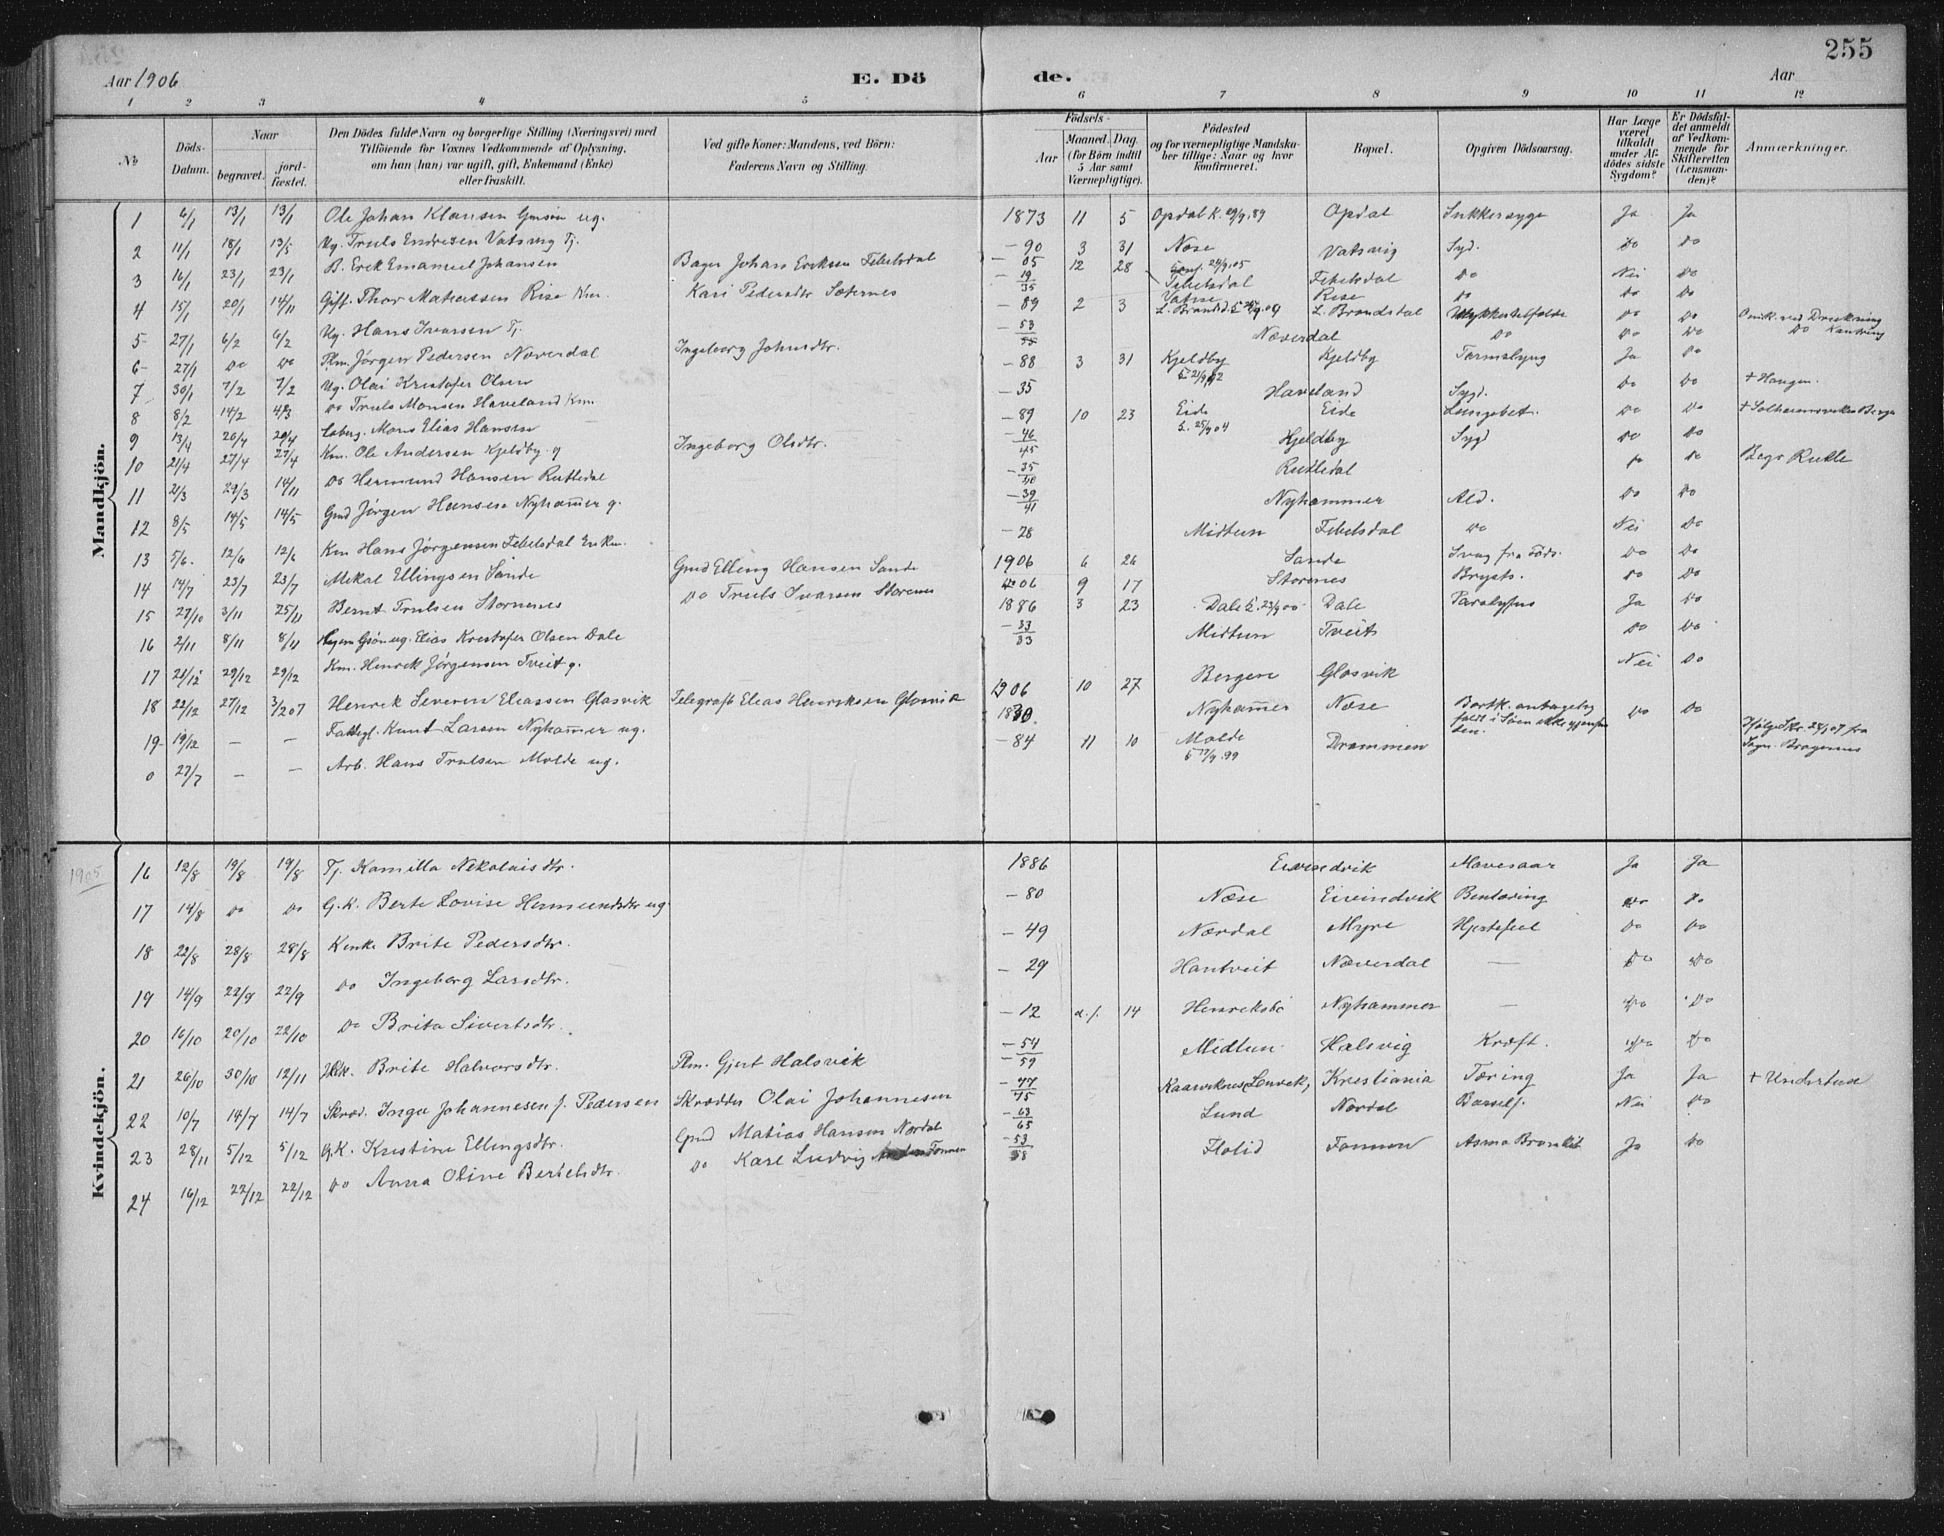 255
Aar 1906
E. Dö
de.
Aar
1 2 3 4 5 6 7 8 9 10 11 12
No
Döds-Datum.
Naar
begravet.
jordfæstet.
Den Dödes fulde Navn og borgerlige Stilling (Næringsvei) med
Tilföiende for Voxnes Vedkommende af Oplysning,
om han (hun) var ugift, gift, Enkemand (Enke)
eller fraskilt.
Ved gifte Koner: Mandens, ved Börn:
Faderens Navn og Stilling.
Födsels-
Aar
Maaned. Dag.
(for Börn indtil
5 Aar samt
Værnepligtige).
Födested
og for værnepligtige Mandska-
ber tillige: Naar og hvor
konfirmeret.
Bopæl.
Opgiven Dödsaarsag.
Har Læge
været
tilkaldt
under Af-
dödes sidste
Sygdom?
Er Dödsfal-
det anmeldt
af Vedkom-
mende for
Skifteretten
(Lensman-
den)?
Anmærkninger.
Mandkjön.
1 6/1 13/1 13/1 Ole Johan Klausen ug. 1873 11 5 Opdal K. 29/9 89 Opdal Sukkersyge Ja Ja
2 11/1 18/1 13/5 Ug. Truls Endresen Vatsvig Tj. - 90 3 31 Næse Vatsvig Do Do
3 16/1 23/1 23/1 B. Erik Emanuel Johansen Bager Johan Eriksen Febelsdal - 05 12 28 Febelsdal Febelsdal Do Nei Do
4 15/1 20/1 14/11 Gift. Thor Matiassen Rise Km. Kari Pedersdtr Sæternes - 19/35 Rise Do Do Do
5 27/1 6/2 6/2 Ug. Hans Ivarsen Tj. - 89 2 3 L. Brandsdal Ulykkestilfælde Do Do Omk. ved Drukning
6 27/1 Do Do Jörgen Pedersen Næverdal Ingeborg Johnsdtr. - 53/55 Næverdal Do Do Do Do
7 30/1 7/2 7/2 Ug. Olai Kristofer Olsen - 88 3 31 Kjeldby Kjeldby Tarmslyng Ja Do
8 8/2 14/2 Do Truls Monsen Haveland Km. - 35 Haveland Do Do + Haugen.
9 13/4 20/4 Mons Elias Hansen - 89 10 23 Eide Eide Lungebet. Do Do + Solheimsviken Bergen
10 21/4 27/4 27/4 Km. Ole Andersen Kjeldby. g Ingeborg Olsdtr. - 46/45 Kjeldby Do Do
11 2/3 29/3 14/11 Do Hermund Hansen Rutledal - 35 Rutledal Do Begr Rutle
12 8/5 14/5 14/5 Gmd Jörgen Hansen Nyhammer g. - 39/41 Nyhammer Ald. Do Do
13 5/6. 12/6 12/6 Km Hans Jörgensen Febelsdal Enkm. - 28 Midtun Febelsdal Do Nei Do
14 14/7 23/7 23/7 Mikal Ellingsen Sande Gmd Elling Hansen Sande 1906 6 26 Sande Svag fra Föds. Do Do
15 27/10 3/11 25/11 Bernt Trulsen Storenes Do Truls Ivarsen Storenes 06 9 17 Storenes Brysts. Do Do
16 2/11 8/11 8/11 ug. Elias Kristofer Olsen Dale 1886 3 23 Dale K. 23/9 00 Dale Paralysus Ja Do
17 21/12 29/12 29/12 Km. Henrik Jörgensen Tveit g. - 33/33 Midtun Tveit Do Do
18 22/12 27/12 3/2 07 Henrik Severin Eliassen Glosvik Telegrafb Elias Henriksen Glosvik 1906 10 27 Bergen Glosvik Nei Do
19 19/12 - - Fattigl. Knut Larsen Nyhammer ug. 1830. Nyhammer Næse Do Do
0 27/7 - - Arb. Hans Trulsen Molde ug. - 84 11 10 Molde Drammen
Kvindekjön.
1905
16 12/8 19/8 19/8 Tj. Kamilla Nikolaisdtr. 1886 Eivindvik Mavesaar Ja Ja
17 14/8 Do Do G.K. Berte Lovise Hermundsdtr ug - 80 Næse Eivindvik Do
18 22/8 28/8 28/8 Enke Brite Pedersdtr. - 49 Nordal Myre Hjertefeil Do Do
19 14/9 22/9 22/9 Do Ingeborg Larsdtr. - 29 Hantveit Næverdal - Do Do
20 16/10 20/10 22/10 Do Brita Sivertsdtr. - 12 14 Henriksbö Nyhammer - Do Do
21 26/10 30/10 12/11 Brite Halvorsdtr. Gjert Halsvik - 54/59 Midtun Halsvig Kræft. Do Do
22 10/7 14/7 14/7 Skræd. Inga Johannesen f. Pedersen Skrædder Olai Johannesen - 77/75 Kristiania Tæring Ja Ja +
23 28/11 5/12 5/12 G.K. Kristine Ellingsdtr. Gmd Matias Hansen Nordal - 63/65 Lund Nordal Barself. Nei Do
24 16/12 22/12 22/12 Do Anna Oline Bertelsdtr. Do Karl Ludvig - 53/58 Flolid Fonnen Asma Bronkit Ja Do